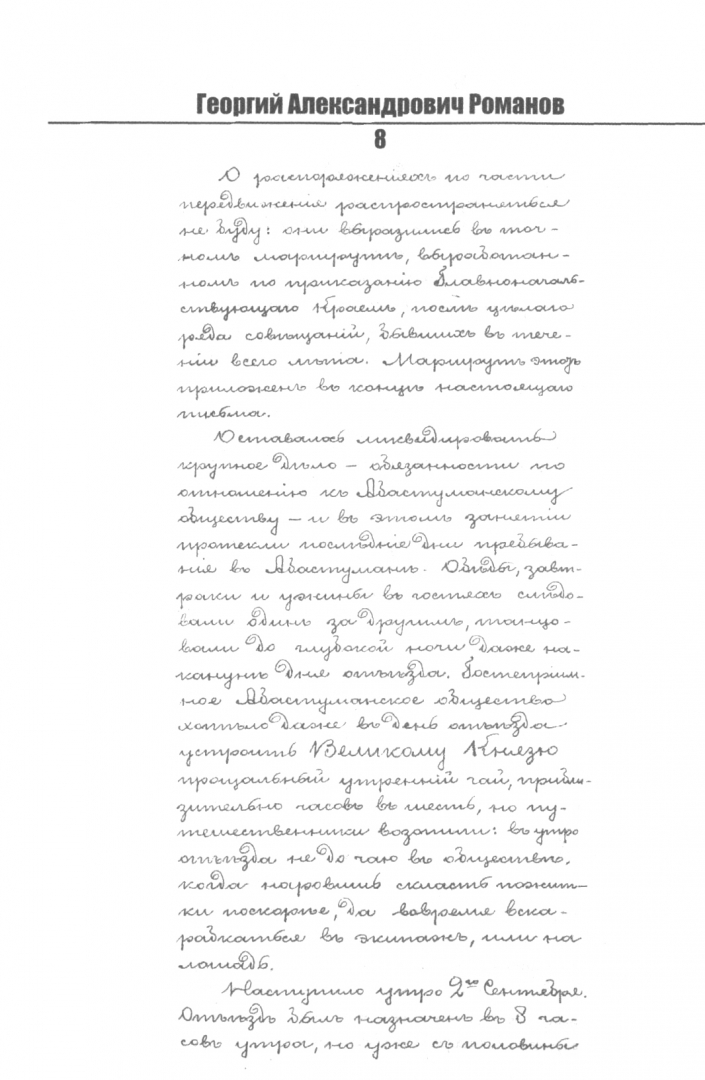 Георгий Александрович Романов
8
О распоряженіяхъ по части
передвиженія распространяться
не буду: они выразились въ точ-
номъ маршрутѣ, выработан-
номъ по приказанію Главноначаль-
ствующаго Краемъ, послѣ цѣлаго
ряда совѣщаній, бывшихъ въ тече-
ніи всего лѣта. Маршрутъ этотъ
приложенъ въ концѣ настоящаго
письма.
Оставалось ликвидировать
крупное дѣло — обязанности по
отношенію къ Абастуманскому
обществу — и въ этомъ занятіи
протекли послѣдніе дни пребыва-
нія въ Абастуманѣ. Обѣды, завт-
раки и ужины въ гостяхъ слѣдо-
вали одинъ за другимъ, танцо-
вали до глубокой ночи даже на-
канунѣ дня отъѣзда. Гостепріим-
ное Абастуманское общество
хотѣло даже въ день отъѣзда
устроить Великому Князю
прощальный утренній чай, прибли-
зительно часовъ въ шесть, но пу-
тешественники возопили: въ утро
отъѣзда не до чаю въ обществѣ,
когда наровишь скласть пожит-
ки поскорѣе, да вовремя вска-
рабкаться въ экипажъ, или на
лошадь.
Наступило утро 2го Сентября.
Отъѣздъ былъ назначенъ въ 8 ча-
совъ утра, но уже съ половины